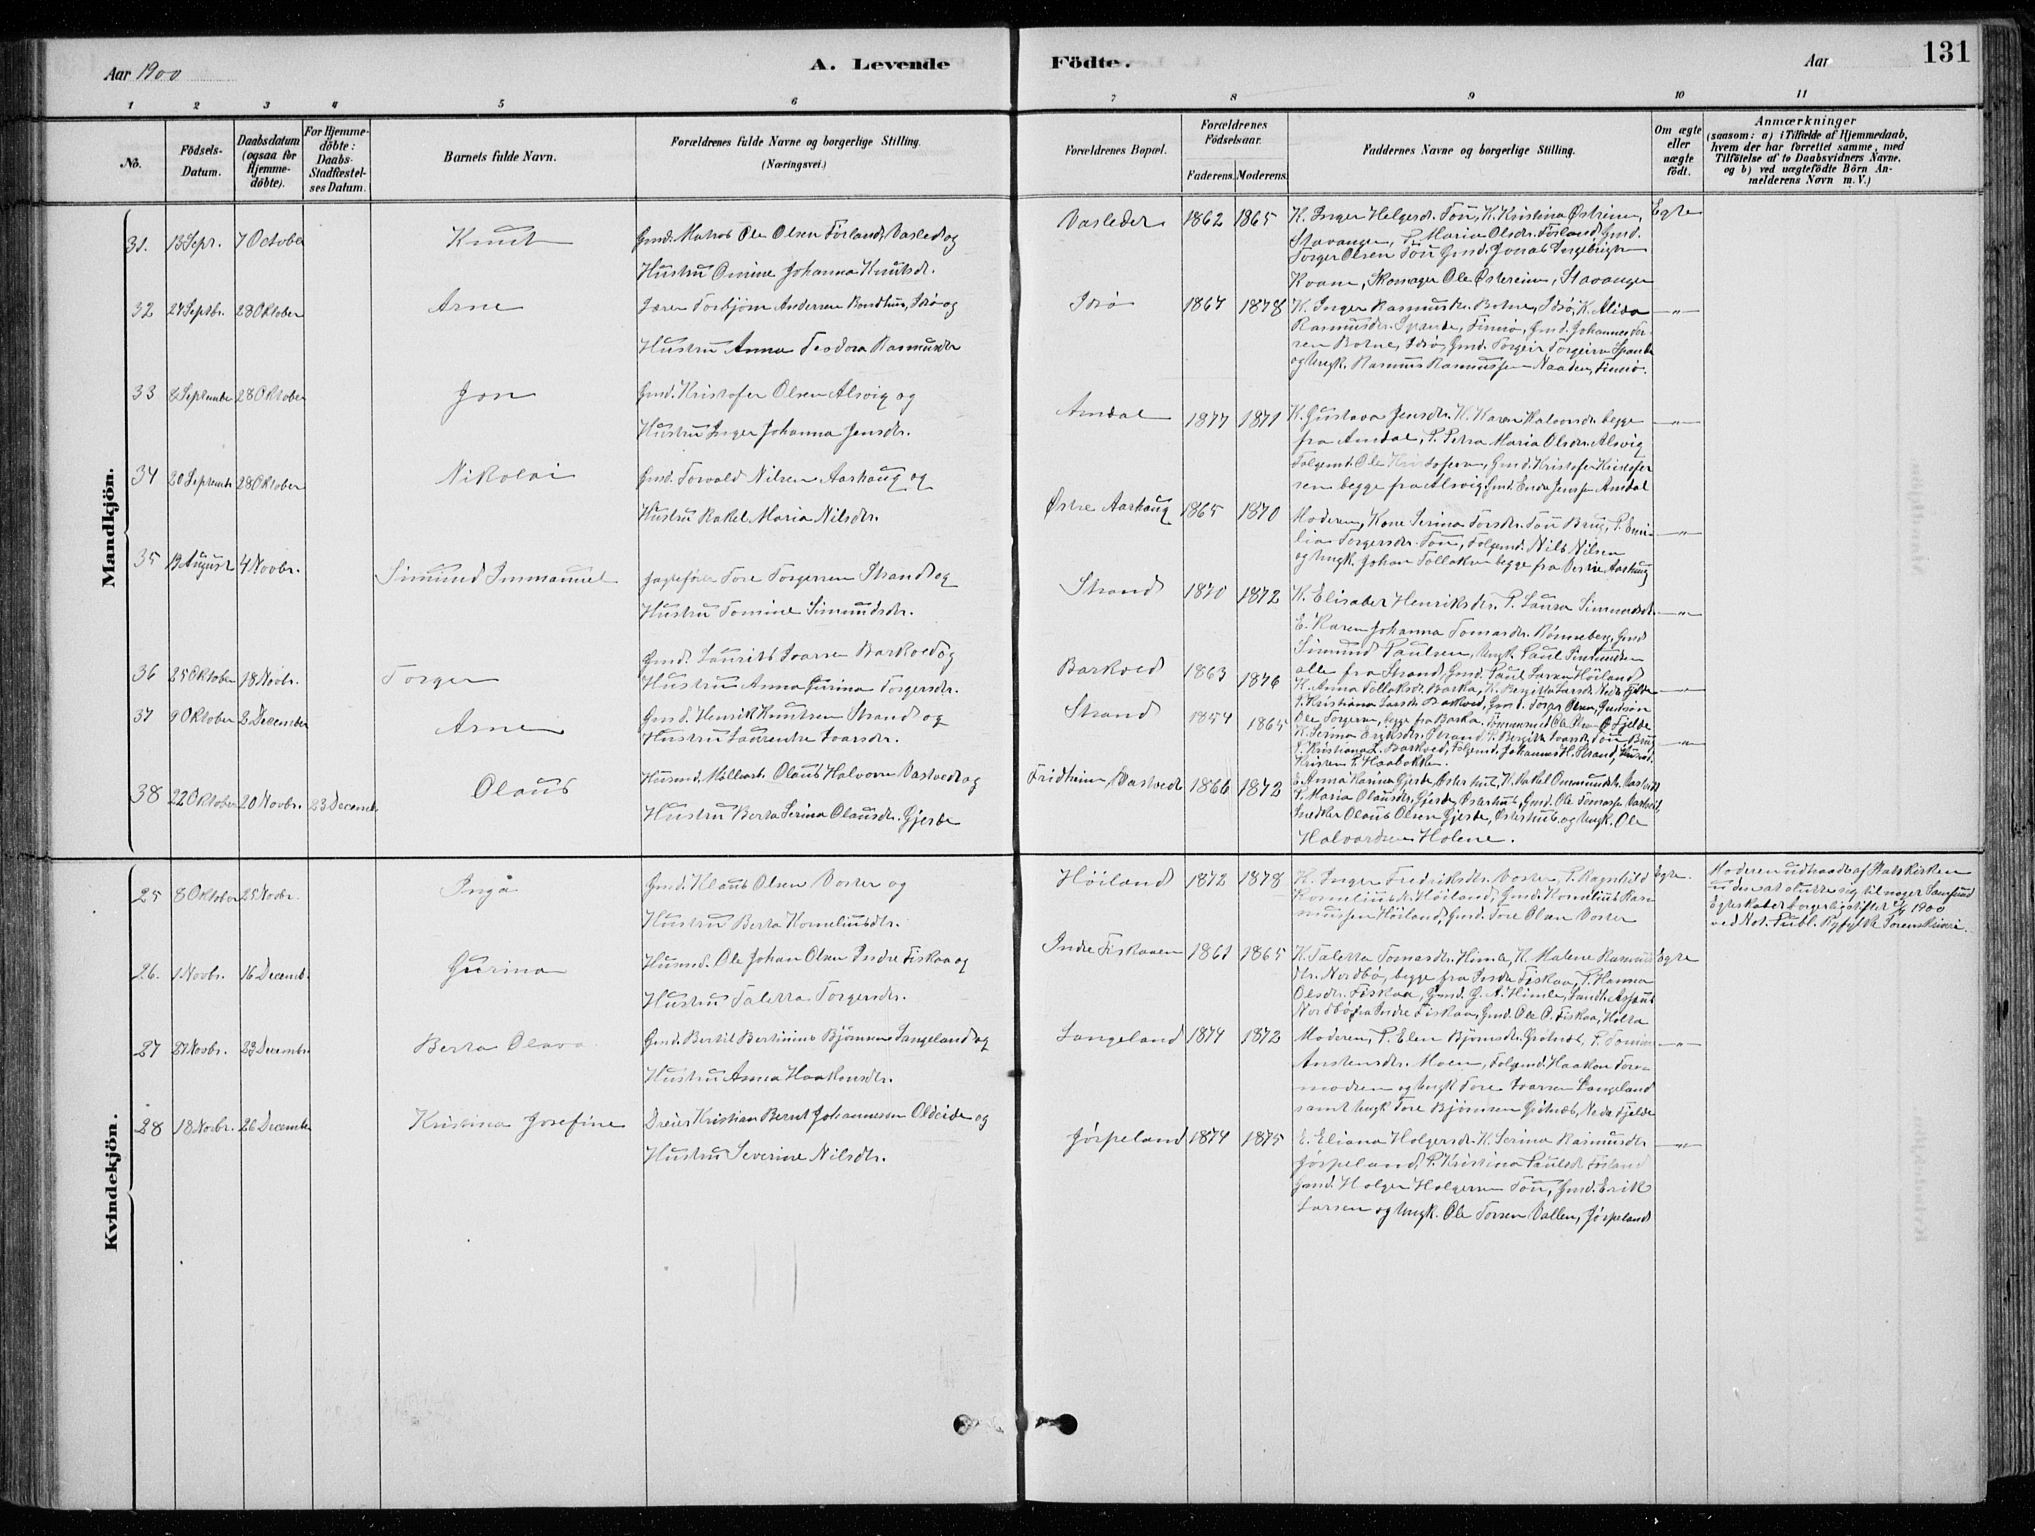 Aar 1900
A. Levende
Födte.
Aar
131
1 2 3 4 5 6 7 8 9 10 11
No.
Födsels-
Datum.
Daabsdatum
(ogsaa for
Hjemme-
döbte).
For Hjemme-
döbte:
Daabs-
Stadfæstel-
ses Datum.
Barnets fulde Navn.
Forældrenes fulde Navne og borgerlige Stilling.
(Næringsvei.)
Forældrenes Bopæl.
Forældrenes
Födselsaar.
Faderens. Moderens.
Faddernes Navne og borgerlige Stilling.
Om ægte
eller
uægte
födt.
Anmærkninger
(saasom: a) i Tilfælde af Hjemmedaab,
hvem der har forrettet samme, med
Tilföielse af to Daabsvidners Navne,
og b) ved uægtefödte Börn An-
melderens Navn m. V.)
Mandkjön.
31. 13 Sept. 7 October Knut
Gmd. Matros Ole Olsen Förland, Vasled og
Hustru Omine Johanna Knutsdr.
Vasleder 1862 1865
K. Inger Helgesdr. Tou, K. Kristina Östreim,
Stavanger, P. Maria Olsdr. Förland, Gmd.
Torger Olsen Tou Gmd. Jonas Ingebrigtsen
Kvame, Skomager Ole Østereim, Stavanger
Egte
32 24 Septbr. 28 Oktober Arne
Torbjörn Andersen Bondhus, Idsö og
Hustru Anna Teodora Rasmusdr
Idsö 1867 1878
K. Inger Rasmusdr. Botne, Idsö, K. Alida
Rasmusdr. Spande, Finnö, Gmd. Johannes
sen Botne, Idsö, Gmd. Torgeir Torgeirsn Spande
og Ungk. Rasmus Rasmussen Naaden, Finnö.
—"—
33 8 September 28 Oktober Jon
Gmd. Kristofer Olsen Alsvig og
Hustru Inger Johanna Jensdr.
Amdal 1877 1871
K. Gustava Jensdr. K. Karen Halvorsdr. begge
fra Amdal, P. Petra Maria Olsdr. Alsvig
Folgemd. Ole Kristofersen, Gmd. Kristofer Kristofer
sen begge fra Alsvig, Gmd. Enda Jensen Amdal
—"—
34 20 Septembr 28 Oktober Nikolai
Gmd. Torvald Nilsen Aarhaug og
Hustru Rakel Maria Nilsdr.
Østre Aarhaug 1865 1870
Moderen, Kone Serina Torsdr. Tou Brug, P. Emi-
lia Torgersdr. Tou, Folgemd. Nils Nilsen
og Ungk. Johan Tollaksn begge fra Vestre Aarhaug
—"—
35 19 August 4 Novbr. Simund Immanuel
Jagtefører Tore Torgersen Strand og
Hustru Tomine Simundsdr.
Strand 1870 1872
K. Elisabet Henriksdr. P. Laura Simundsdr.
E. Karen Johanna Tomasdr. Rönneberg, Gmd.
Simund Paulsen, Ungk. Paul Simundsen
alle fra Strand, Gmd. Paul Larsen Höiland
—"—
36 25 Oktober 18 Novbr. Torger
Gmd. Laurits Ivarsen Barkved og
Hustru Anna Gurina Torgersdr.
Barkved 1863 1876
K. Anna Tollaksdr. Barka, K. Bergitta Larsdr. Nedre Fjelde
P. Kristiana Larsdr. Barkved, Gmd. Torger Olsen, Gmdsøn
Ole Torgersen, begge fra Barka,
—"—
37 9 Oktober 2 December Arne
Gmd. Henrik Knutsen Strand og
Hustru Laurentse Ivarsdr.
Strand 1854 1865
K. Serina Eriksdr. Strand, K. Bergitte Ivarsdr. Tou Brug
P. Kristiane L. Barkved, Folgemd. Johannes H. Strand,
Kristen T. Haabakken.
—"—
38 22 Oktober 20 Novbr. 23 Decemb. Olaus
Husmd. Möllearb. Olaus Halvorsen Vastvedt og
Hustru Berta Serina Olausdr. Gjerde
Fridheim, Vastvedt 1866 1872
E. Anna Karina Gjerde, Østerhus, K. Rakel Ommundsdr. Vastvedt
P. Maria Olausdr. Gjerde, Østerhus, Gmd. Ole Tomassen Vastvedt,
Snedker Olaus Olsen Gjerde, Østerhus og Ungk. Ole
Halvordsen Holene.
Kvindekjön.
25 8 Oktober 25 Novbr. Inga
Gmd. Klaus Olsen Voster og
Hustru Berta Korneliusdtr.
Höiland 1872 1878
K. Inger Fredriksdtr. Voster, P. Ragnhild
Korneliusdr. Höiland, Gmd. Kornelius Ras-
mussen Höiland, Gmd. Tore Olsen Voster
Egte.
Moderen udtraadt af Statskirken
uden at slutte sig til noget Samfund
Ægteskabet borgerlig stiftet 1900
ved Not. Publ. Ryfylke Sorenskriveri.
26. 1 Novbr. 16 Decemb. Gurina
Husmd. Ole Johan Olsen Indre Fiskaa og
Hustru Taletta Torgersdr.
Indre Fiskaaen 1861 1865
K. Taletta Tomasdr. Himle, K. Malene Rasmus
dr. Nordbö, begge fra Indre Fiskaa, P. Hanna
Olsdr. Fiskaa, Gmd. G. A. Himle, Landh. Asbjörn
Nordbö fra Indre Fiskaa, Gmd. Ole O. Fiskaa, Holta
Egte
27 27 Novbr. 23 Decembr. Berta Olava
Gmd. Bertil Bertinius Björnsen Langeland og
Hustru Anna Haakonsdr.
Langeland 1874 1872
Moderen, P. Elen Björnsdr. Grötnes, P. Tomine
Austensdr. Moen, Folgemd. Haakon Tore-
modsen og Ungk Tore Ivarsen Langeland
samt Ungk Tore Björnsen Grötnes, Nedre Fjelde
—"—
28 18 Novbr. 26 December Kristina Josefine
Dreier Kristian Bernt Johannessen Oldeide og
Hustru Severine Nilsdtr.
Jörpeland 1874 1875
E. Eliana Holgersdr. K. Serina Rasmusdtr
Jörpeland, P. Kristina Paulsdr. Förland
Gmd. Holger Holgersen Tou, Gmd. Erik
Larsen og Ungk. Ole Torsen Vallen, Jörpeland
—"—